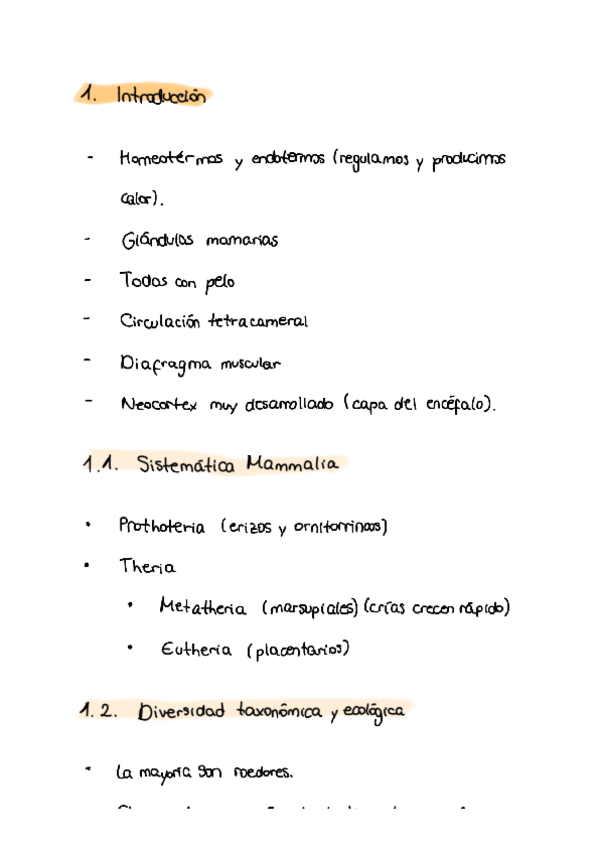 1. Introducción
- Homeotérmos y endotermos (regulamos y producimos
calor).
- Glándulas mamarias
- Todos con pelo
- Circulación tetracameral
- Diafragma muscular
- Neocortex muy desarrollado (capa del encéfalo).
1.1. Sistemática Mammalia
• Prothoteria (erizos y ornitorrincos)
• Theria
• Metatheria (marsupiales) (crías crecen rápido)
• Eutheria (placentarios)
1.2. Diversidad taxonómica y ecológica
- La mayoría son roedores.